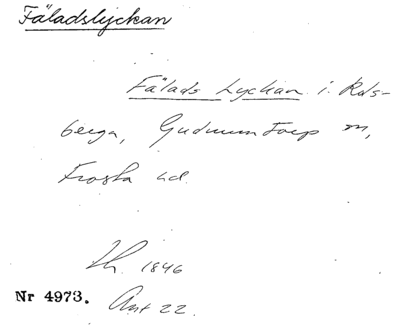 Fäladslyckan
Fälads Lyckan i Röds-
berga, Gudmuntorp m,
Frosta hd.
Lh. 1846
Nr 4973. Ant 22.